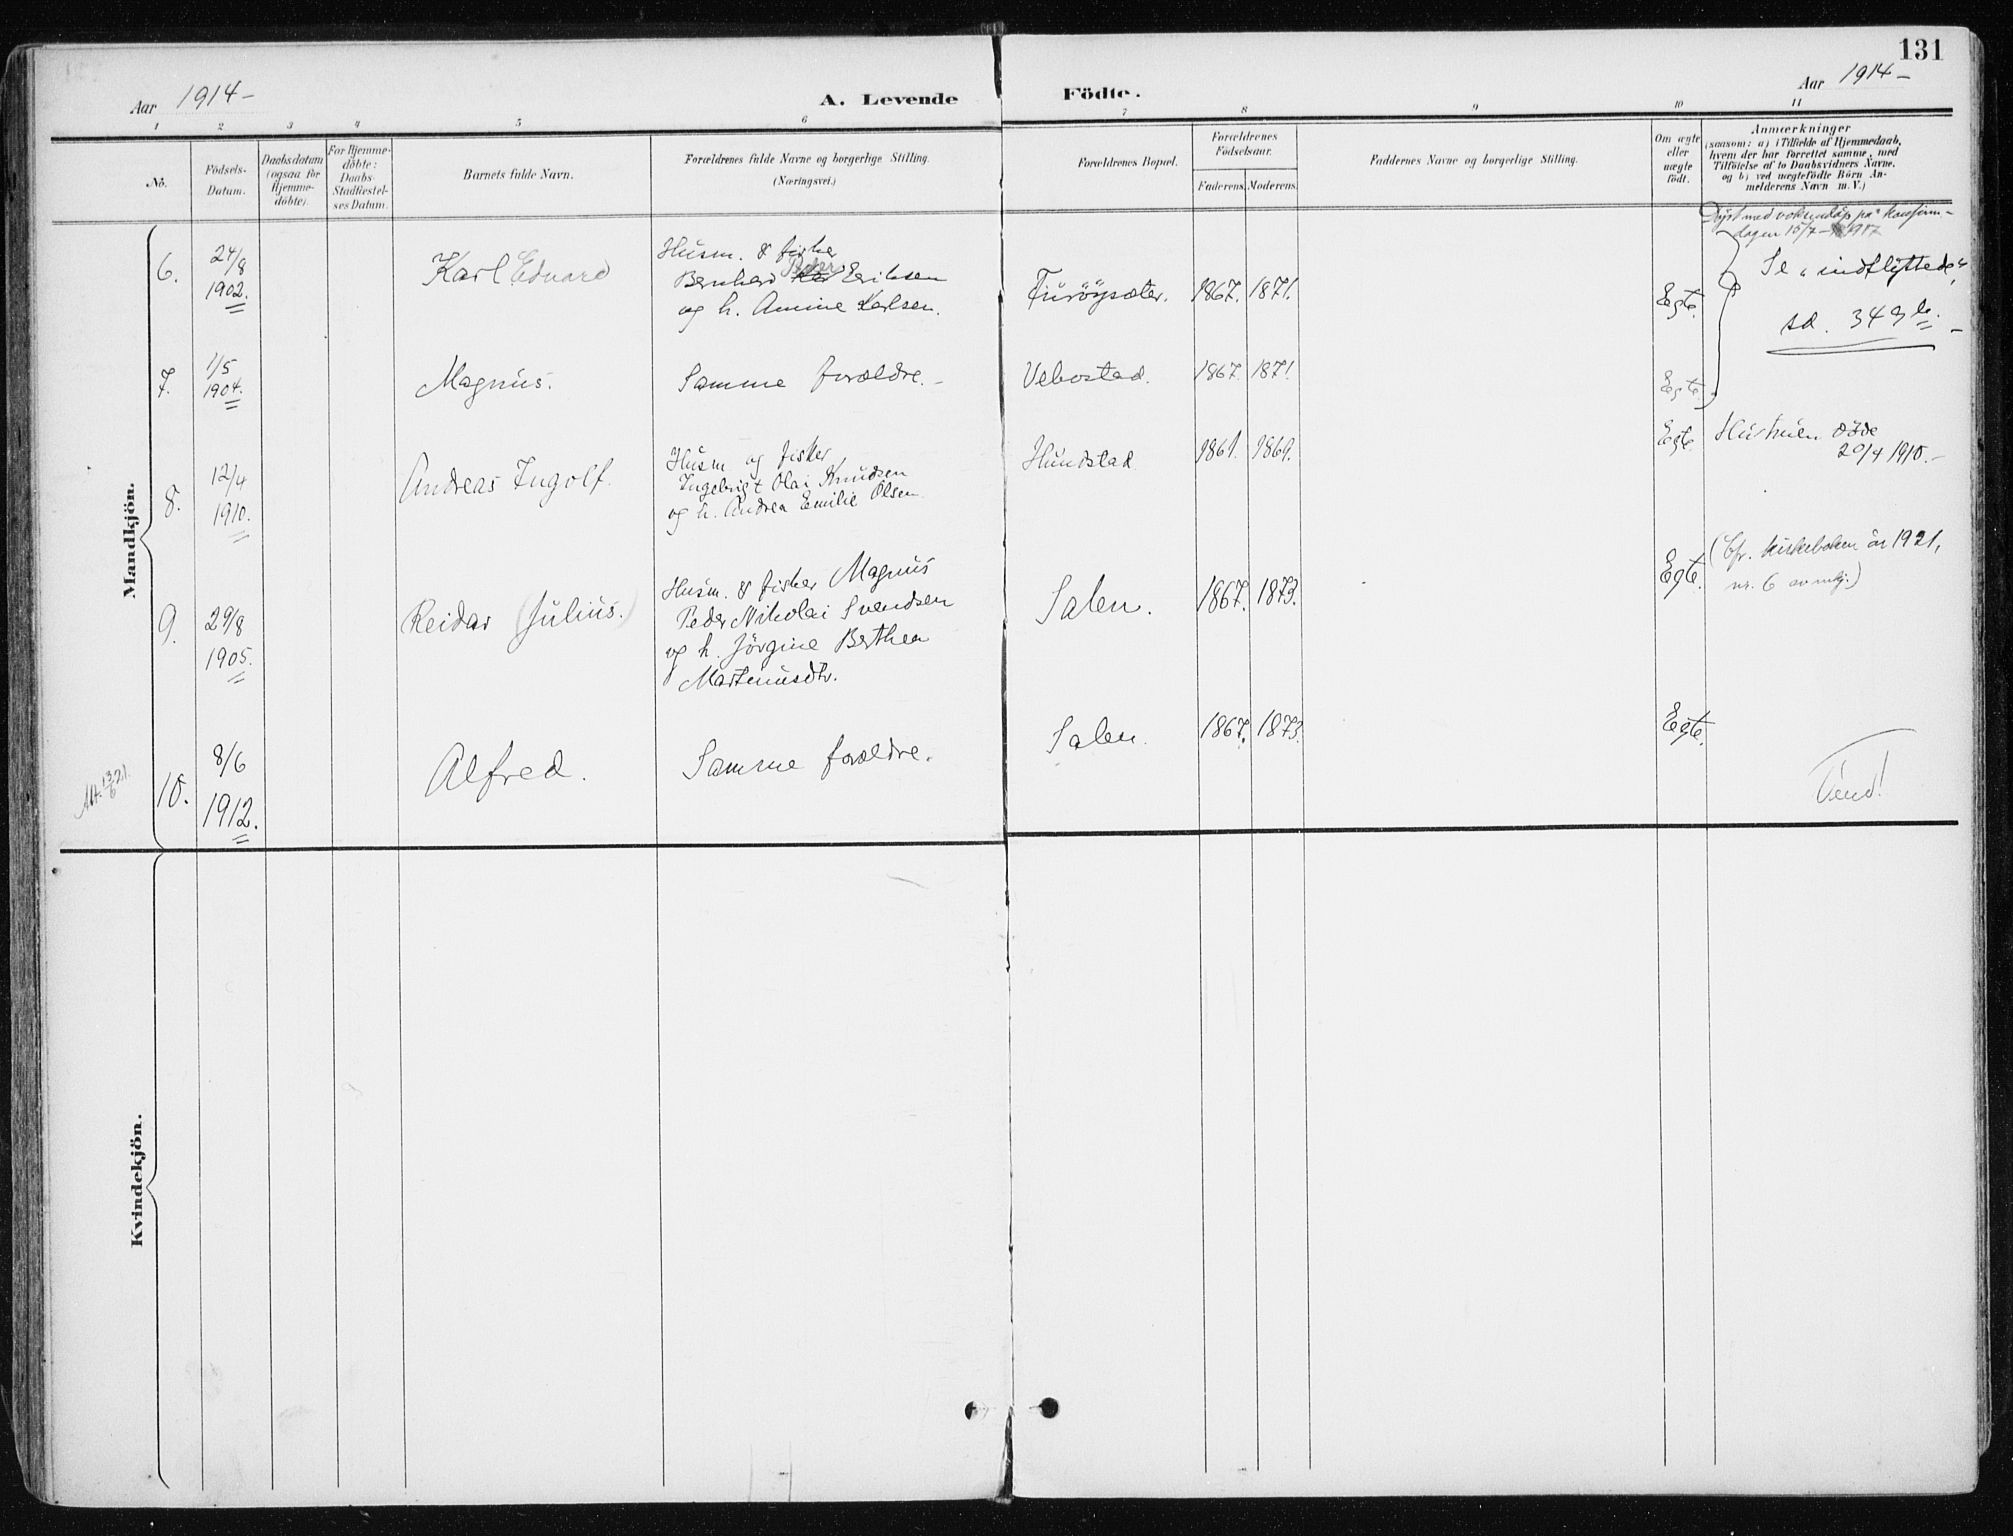 131
Aar 1914-
A. Levende Födte.
Aar 1914-
1 2 3 4 5 6 7 8 9 10 11
No.
Födsels-
Datum.
Daabsdatum
(ogsaa for
Hjemme-
döbte).
For Hjemme-
döbte:
Daabs-
Stadfæstel-
ses Datum.
Barnets fulde Navn.
Forældrenes fulde Navne og borgerlige Stilling.
(Næringsvei.)
Forældrenes Bopæl.
Forældrenes
Födselsaar.
Faderens. Moderens.
Faddernes Navne og borgerlige Stilling.
Om ægte
eller
uægte
födt.
Anmærkninger
(saasom: a) i Tilfælde af Hjemmedaab,
hvem der har forrettet samme, med
Tilföielse af to Daabsvidners Navne.
og b) ved uægtefödte Börn An-
melderens Navn m. V.)
Mandkjön.
6.
24/8
1902.
Karl Edvard
Husm. & fisker
Bernhard Peder Eriksen
og h. Amine Karlsen.
1867. 1871.
Egte.
dagen 15/7 - 1917
Se "indflyttede"
sd. 349 b. -
7.
1/5
1904.
Magnus.
Samme forældre. -
Vebostad.
1867. 1871.
Egte.
8.
12/4
1910.
Andreas Ingolf.
Husm. og fisker
Ingebrigt Olai Knudsen
og h. Andrea Emilie Olsen.
Hundstad
1861. 1869.
Egte.
Hustruen döde
20/4 1910. -
9.
29/8
1905.
Reidar (Julius.)
Husm. & fisker Magnus
Peder Nikolai Svendsen
og h. Jörgine Berthea
Martenusdtr.
Salen.
1867. 1873.
Egte.
(Cfr. kirkeboken år 1921,
nr. 6 av mkj.)
10.
8/6
1912.
Alfred.
Samme forældre.
Salen.
1867. 1873.
Egte.
Vend!
Att. 13/6 21.
Kvindekjön.